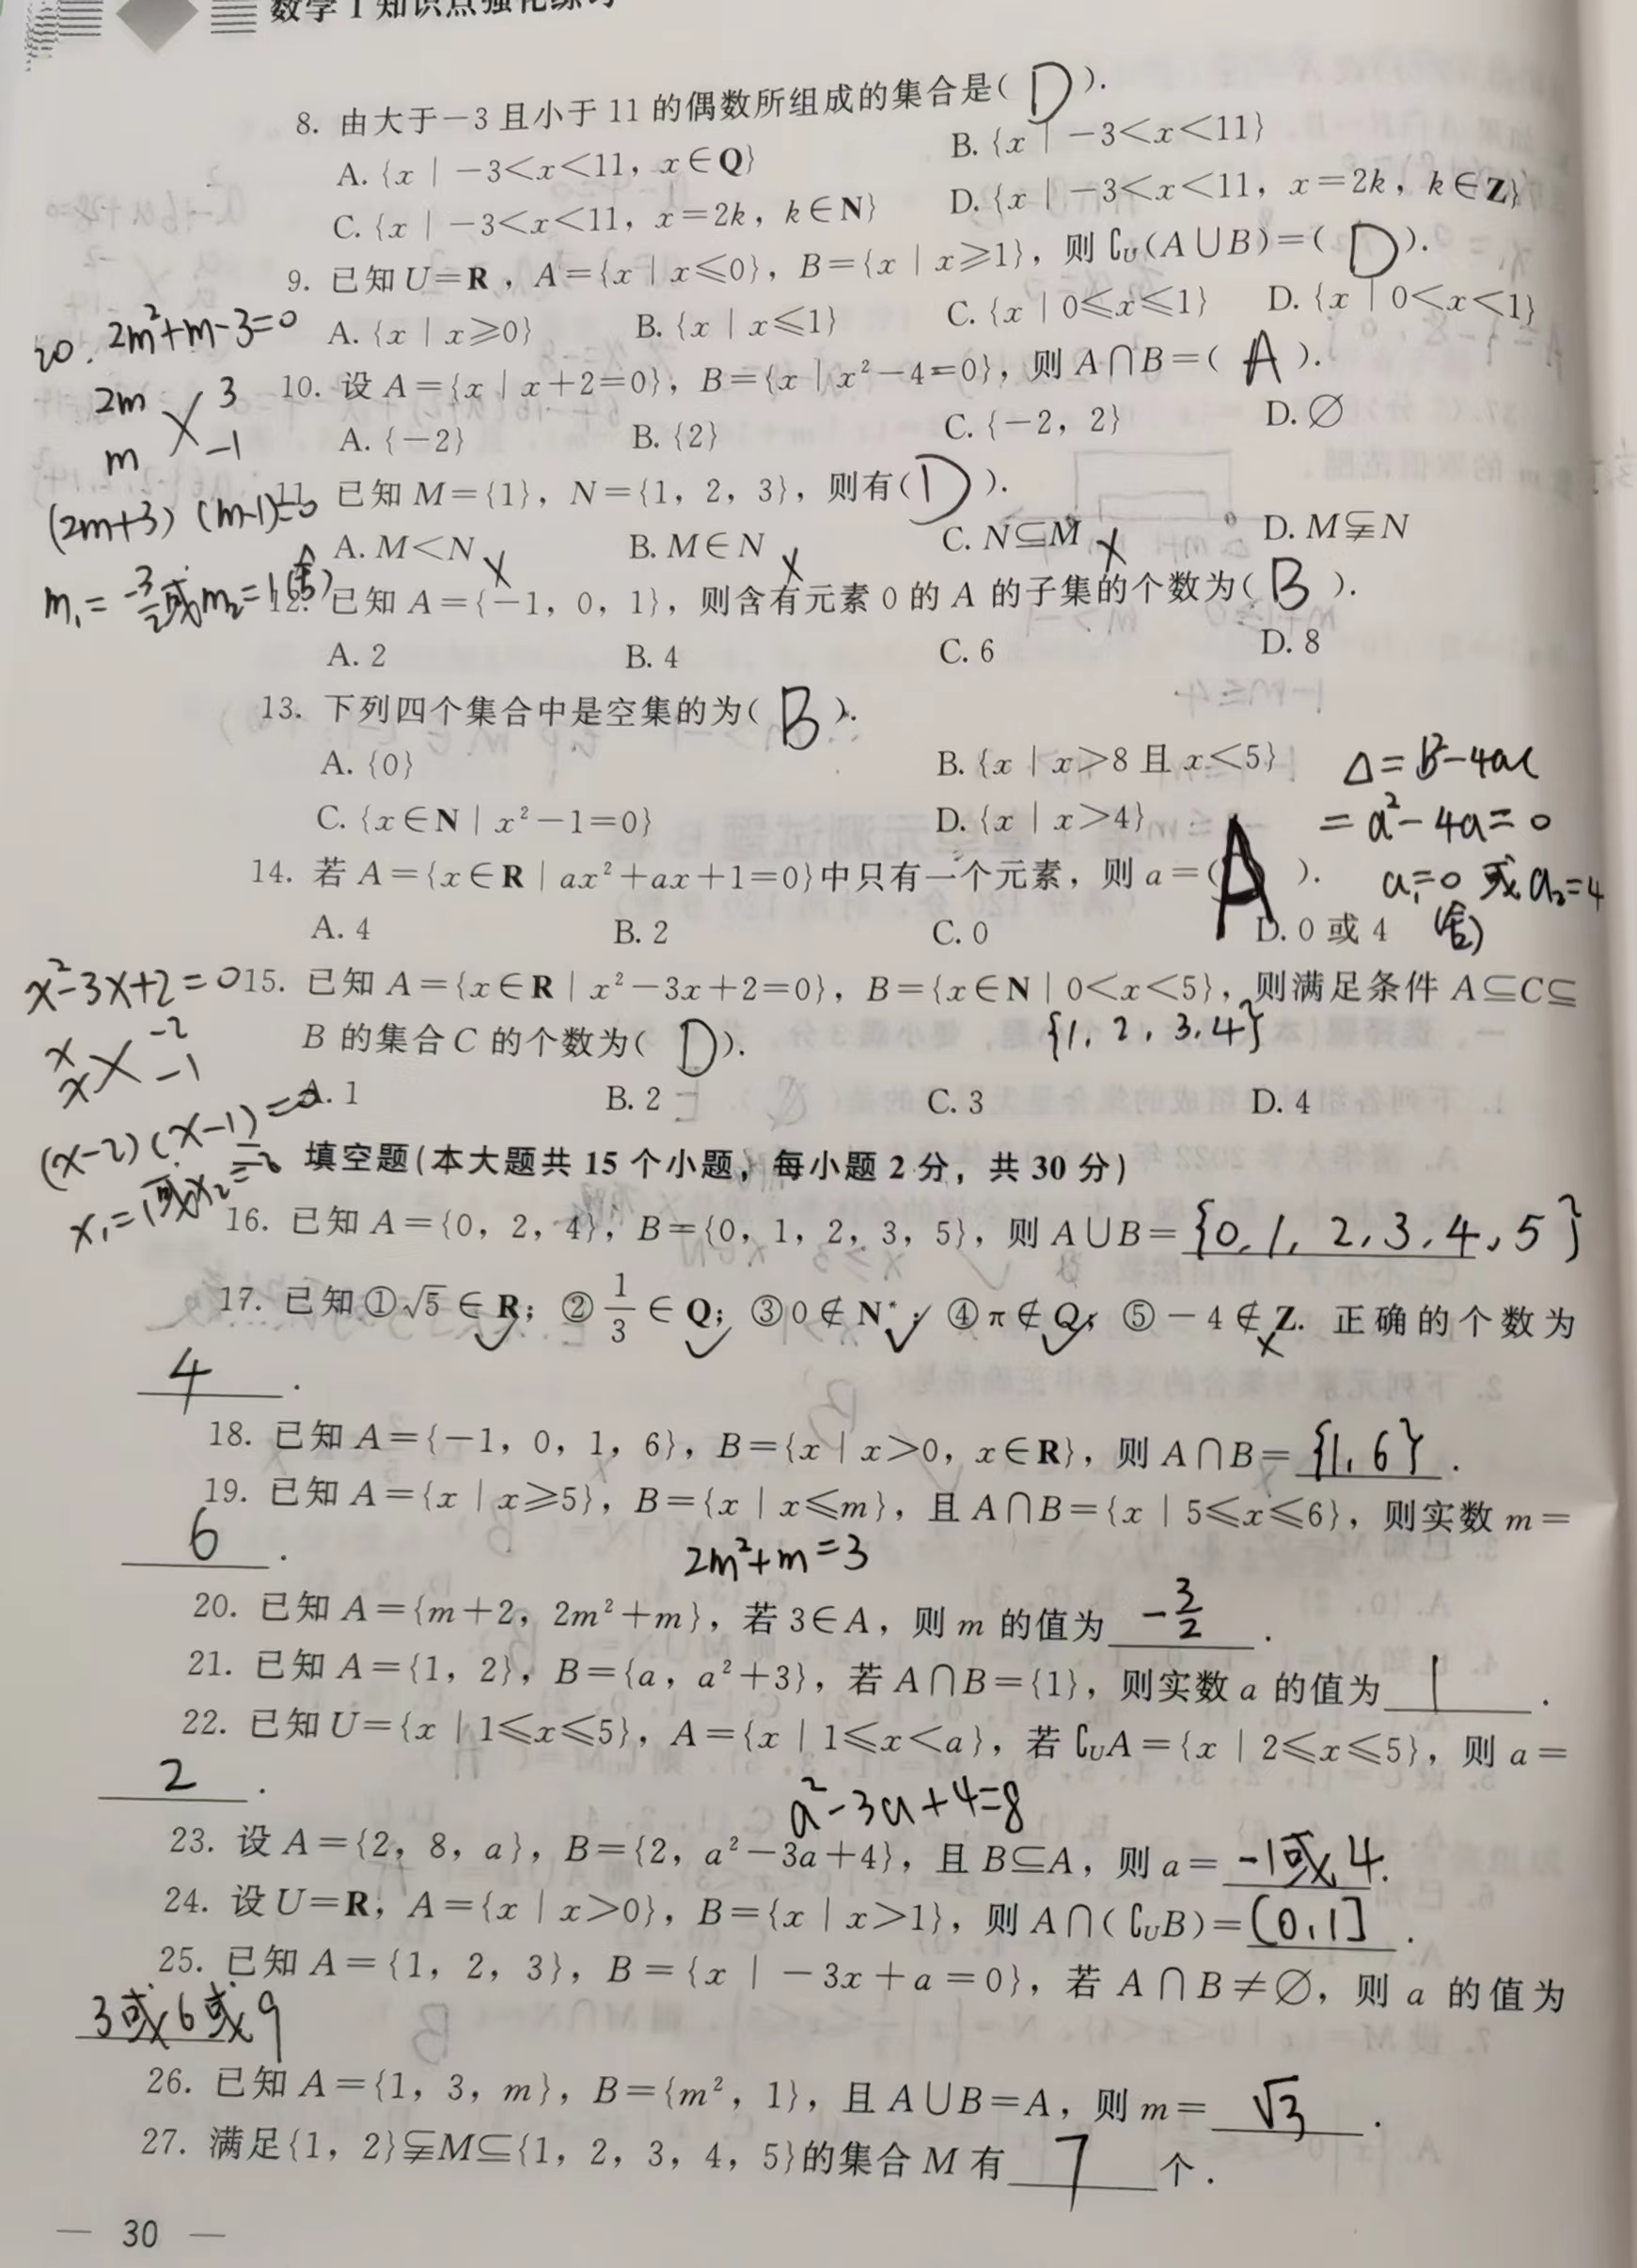 数学1知识点强化练习
8. 由大于-3且小于11的偶数所组成的集合是( D ).
A. {x | -3<x<11, x∈Q} B. {x | -3<x<11}
C. {x | -3<x<11, x=2k, k∈N} D. {x | -3<x<11, x=2k, k∈Z}
9. 已知U=R, A={x | x≤0}, B={x | x≥1}, 则∁U(A∪B)=( D ).
A. {x | x≥0} B. {x | x≤1} C. {x | 0≤x≤1} D. {x | 0<x<1}
20. 2m²+m-3=0
2m 3
m -1
(2m+3)(m-1)=0
m₁=-3/2或m₂=1(舍)
10. 设A={x | x+2=0}, B={x | x²-4=0}, 则A∩B=( A ).
A. {-2} B. {2} C. {-2, 2} D. ∅
11. 已知M={1}, N={1, 2, 3}, 则有( D ).
A. M<N × B. M∈N × C. N⊆M × D. M⫋N
12. 已知A={-1, 0, 1}, 则含有元素0的A的子集的个数为( B ).
A. 2 B. 4 C. 6 D. 8
13. 下列四个集合中是空集的为( B ).
A. {0} B. {x | x>8且x<5}
C. {x∈N | x²-1=0} D. {x | x>4}
Δ=B²-4ac
=a²-4a=0
a₁=0或a₂=4
(舍)
14. 若A={x∈R | ax²+ax+1=0}中只有一个元素, 则a=( A ).
A. 4 B. 2 C. 0 D. 0或4
x²-3x+2=0
x -2
x -1
(x-2)(x-1)=0
x₁=1或x₂=2
15. 已知A={x∈R | x²-3x+2=0}, B={x∈N | 0<x<5}, 则满足条件A⊆C⊆
{1, 2, 3, 4}
B的集合C的个数为( D ).
A. 1 B. 2 C. 3 D. 4
二 填空题(本大题共15个小题, 每小题2分, 共30分)
16. 已知A={0, 2, 4}, B={0, 1, 2, 3, 5}, 则A∪B={0, 1, 2, 3, 4, 5}
17. 已知①√5∈R; ②1/3∈Q; ③0∉N*; ④π∉Q; ⑤-4∉Z. 正确的个数为
4.
18. 已知A={-1, 0, 1, 6}, B={x | x>0, x∈R}, 则A∩B={1, 6}.
19. 已知A={x | x≥5}, B={x | x≤m}, 且A∩B={x | 5≤x≤6}, 则实数m=
6.
2m²+m=3
20. 已知A={m+2, 2m²+m}, 若3∈A, 则m的值为-3/2.
21. 已知A={1, 2}, B={a, a²+3}, 若A∩B={1}, 则实数a的值为1.
22. 已知U={x | 1≤x≤5}, A={x | 1≤x<a}, 若∁UA={x | 2≤x≤5}, 则a=
2.
a²-3a+4=8
23. 设A={2, 8, a}, B={2, a²-3a+4}, 且B⊆A, 则a=-1或4.
24. 设U=R, A={x | x>0}, B={x | x>1}, 则A∩(∁UB)=(0, 1].
25. 已知A={1, 2, 3}, B={x | -3x+a=0}, 若A∩B≠∅, 则a的值为
3或6或9
26. 已知A={1, 3, m}, B={m², 1}, 且A∪B=A, 则m=√3.
27. 满足{1, 2}⫋M⊆{1, 2, 3, 4, 5}的集合M有7个.
— 30 —